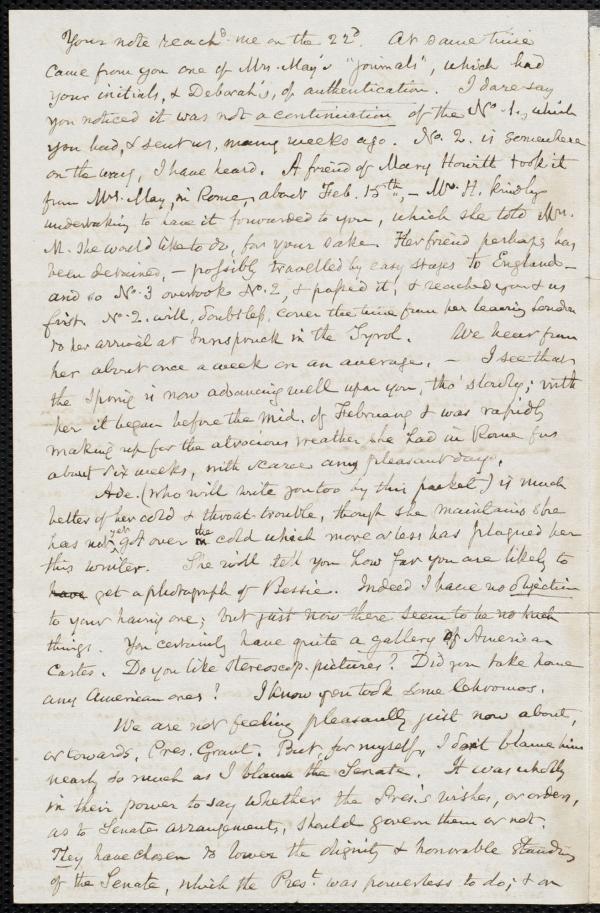 Your note reach'd me on the 22d. At same time
came from you one of Mrs. May's "Journals", which had
your initials, & Deborah's, of authentication. I dare say
you noticed it was not a continuation of the No. 1, which
you had, & sent us, many weeks ago. No. 2. is somewhere
on the way, I have heard. A friend of Mary Howitt took it
from Mrs. May, in Rome, about Feb. 15th, – Mrs. H. kindly
undertaking to have it forwarded to you, which she told Mrs.
M. she would like to do, for your sake. Her friend perhaps has
been detained, – possibly travelled by easy stages to England –
and so No. 3 overtook No. 2, & passed it, & reached you & us
first. No. 2. will, doubtless, cover the time from her leaving London
to her arrival at Innspruck in the Tyrol. We hear from
her about once a week on an average. – I see that
the Spring is now advancing well upon you, tho' slowly; with
her it began before the mid. of February, & was rapidly
making up for the atrocious weather she had in Rome for
about six weeks, with scarce any pleasant days.
Ade. (who will write you too by this packet) is much
better of her cold & throat-trouble, though she maintains she
has not yet got over the cold which more or less has plagued her
this winter. She will tell you how far you are likely to
have get a photograph of Bessie. Indeed I have no objection
to your having one; but just now there seem to be no such
things. You certainly have quite a gallery of American
Cartes. Do you like stereoscop. pictures? Did you take home
any American ones? I know you took some Chromos.
We are not feeling pleasantly just now about,
or towards, Pres. Grant. But, for myself, I don't blame him
nearly so much as I blame the Senate. It was wholly
in their power to say whether the Pres.'s wishes, or orders,
as to Senate arrangements, should govern them or not.
They have chosen to lower the dignity & honorable standing
of the Senate, which the Prest. was powerless to do; & on